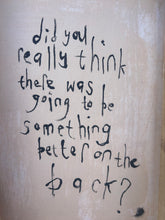 did you
really think
there was
going to be
something
better on the
back?